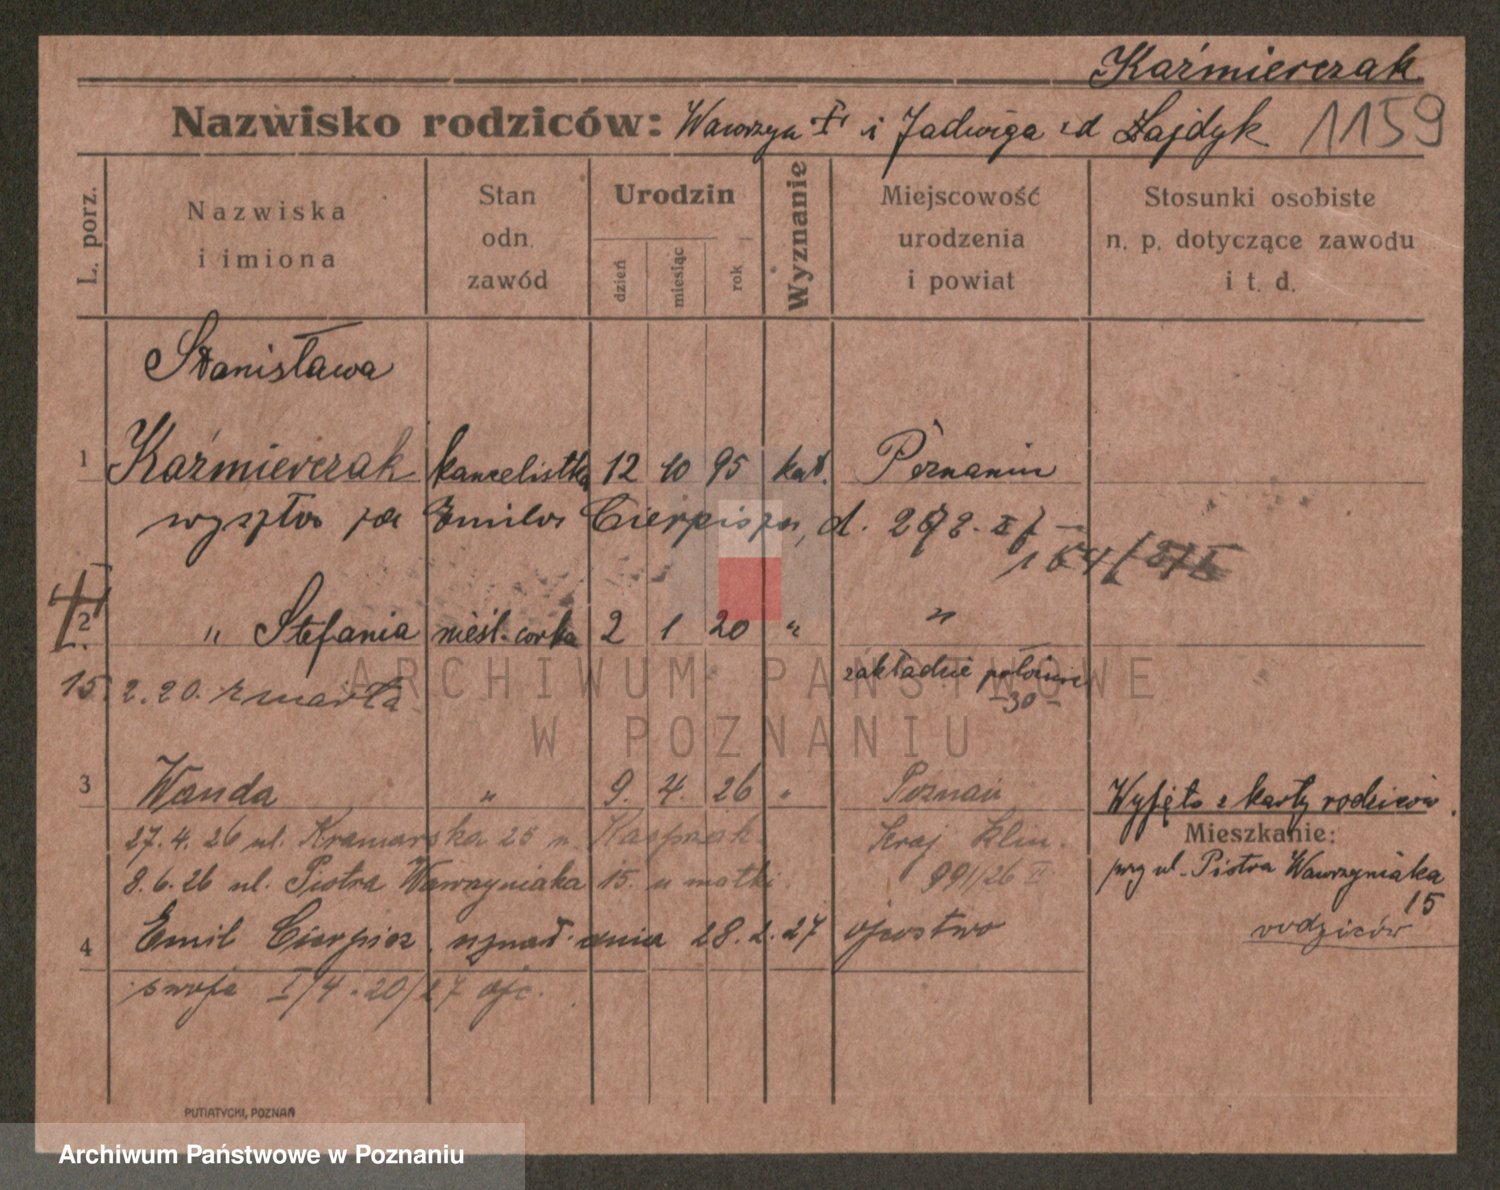 Kaźmierczak
Nazwisko rodziców: Wawrzyn i Jadwiga zd Łajdyk 1159
L. porz.
Nazwiska i imiona
Stan odn. zawód
Urodzin
dzień
miesiąc
rok
Wyznanie
Miejscowość urodzenia i powiat
Stosunki osobiste n. p. dotyczące zawodu i t. d.
Stanisława
1 Kaźmierczak kancelistka 12 10 95 kat. Poznaniu
wyszła za Emila Cierpisza, d.
2 " Stefania nieśl. corka 2 1 20 " "
15. 2. 20. zmarła
zakładzie położnic
-30-
3 Wanda " 9. 4. 26 " Poznań
Wyjęto z karty rodziców.
27. 4. 26 ul. Kramarska 25 u. Kasprzak. Kraj klin.
Mieszkanie:
8. 6. 26 ul. Piotra Wawrzyniaka 15. u matki 991/26 II
przy ul. Piotra Wawrzyniaka
15
rodziców
4 Emil Cierpisz uznał dnia 28. 2. 27 ojcostwo
swoje I/4 - 20/27 ojc.
PUTIATYCKI, POZNAŃ
ARCHIWUM PAŃSTWOWE
W POZNANIU
Archiwum Państwowe w Poznaniu